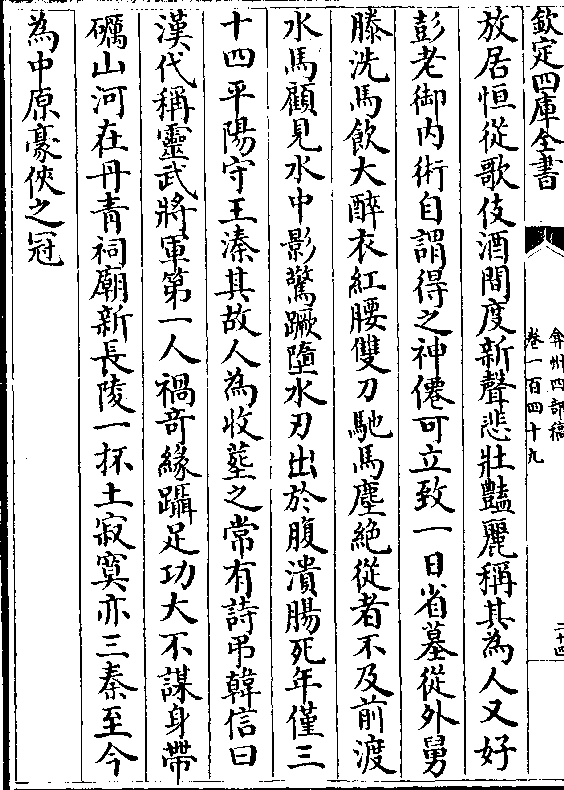 欽定四庫全書
弇州四部稿
卷一百四十九
二十四
放居恒從歌伎酒間度新聲悲壯豔麗稱其為人又好
彭老御内術自謂得之神僊可立致一日省墓從外舅
滕洗馬飲大醉衣紅腰雙刀馳馬塵絶從者不及前渡
水馬顧見水中影驚蹶墮水刃出於腹潰腸死年僅三
十四平陽守王溱其故人為收塟之常有詩弔韓信曰
漢代稱靈武將軍第一人禍奇緣躡足功大不謀身帶
礪山河在丹青祠廟新長陵一抔土寂寞亦三秦至今
為中原豪俠之冠